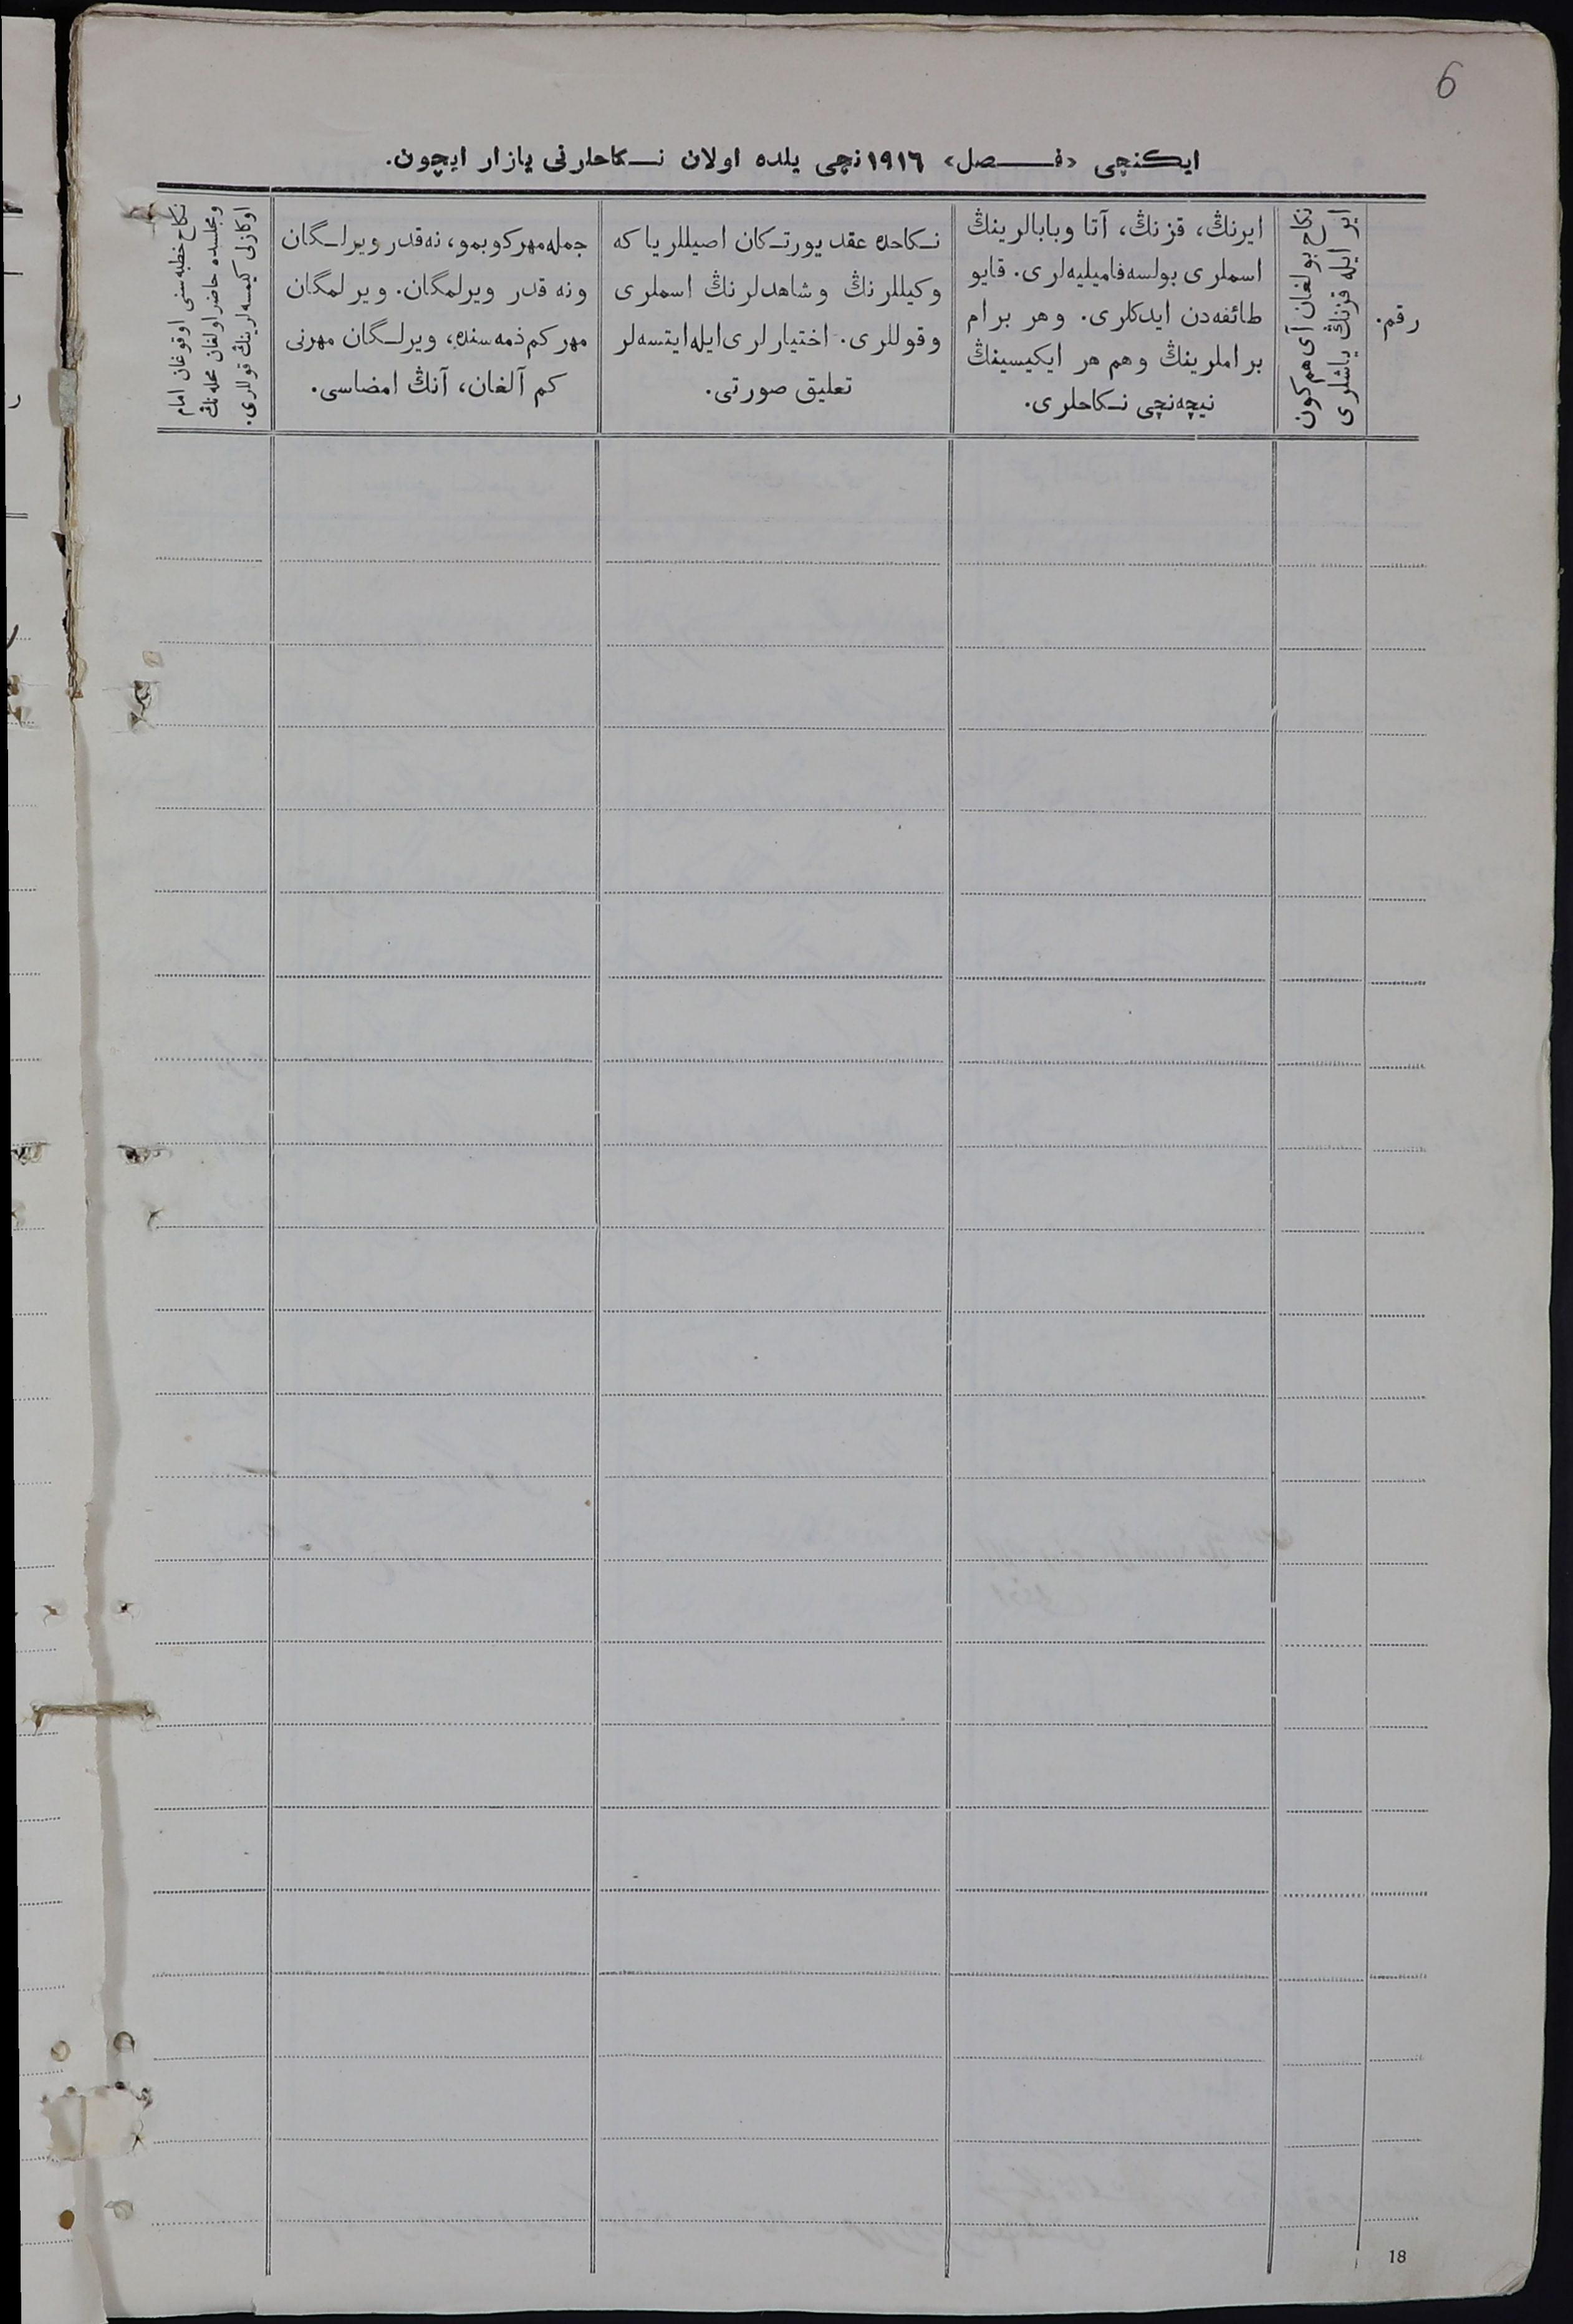 6
ایكنچی «فصل» ١٩١٦نچی یلده اولان نكاحلرنی یازار ایچون.
رقم.
نكاح بولغان آی هم كون
ایر ایله قزنڭ یاشلری
ایرنڭ، قزنڭ، آتا وبابالرینڭ
اسملری بولسه فامیلیه‌لری. قایو
طائفه‌دن ایدكلری. وهر برام
براملرینڭ وهم هر ایكیسینڭ
نیچه‌نچی نكاحلری.
نكاحده عقد یورتكان اصیللر یا كه
وكیللرنڭ وشاهدلرنڭ اسملری
وقوللری. اختیارلری ایله ایتسه‌لر
تعلیق صورتی.
جمله مهر كوبمو، نه‌قدر ویرلگان
ونه قدر ویرلمگان. ویرلمگان
مهر كم ذمه‌سنده، ویرلگان مهرنی
كم آلغان، آنڭ امضاسی.
نكاح خطبه‌سنی اوقوغان امام
ومجلسده حاضر اولغان محله‌نڭ
اوكازنی كیمسه‌لرینڭ قوللری.
18